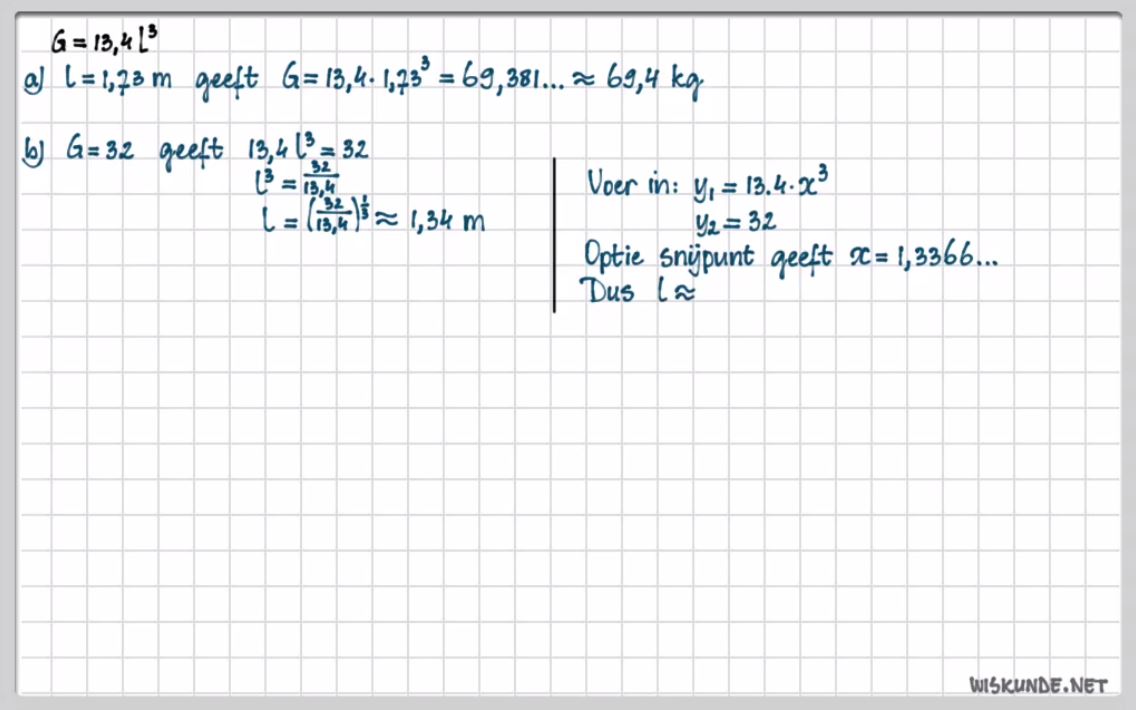 G = 13,4 l³
a) l = 1,73 m geeft G = 13,4 · 1,73³ = 69,381... ≈ 69,4 kg
b) G = 32 geeft 13,4 l³ = 32
l³ = 32/13,4
l = (32/13,4)^(1/3) ≈ 1,34 m
Voer in: y₁ = 13.4 · x³
y₂ = 32
Optie snijpunt geeft x = 1,3366...
Dus l ≈
WISKUNDE.NET